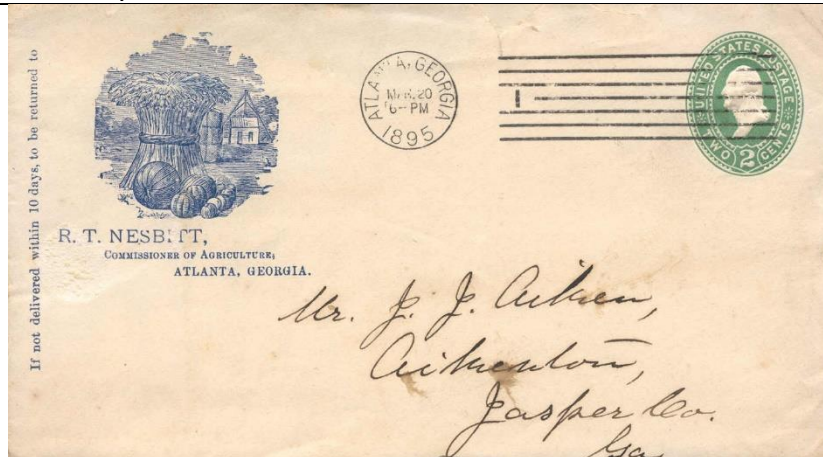 If not delivered within 10 days, to be returned to
R. T. NESBITT,
COMMISSIONER OF AGRICULTURE,
ATLANTA, GEORGIA.
ATLANTA, GEORGIA
MAR. 20
6-PM
1895
1
UNITED STATES POSTAGE
TWO 2 CENTS
Mr. J. J. Aiken,
Aikenton,
Jasper Co.
Ga